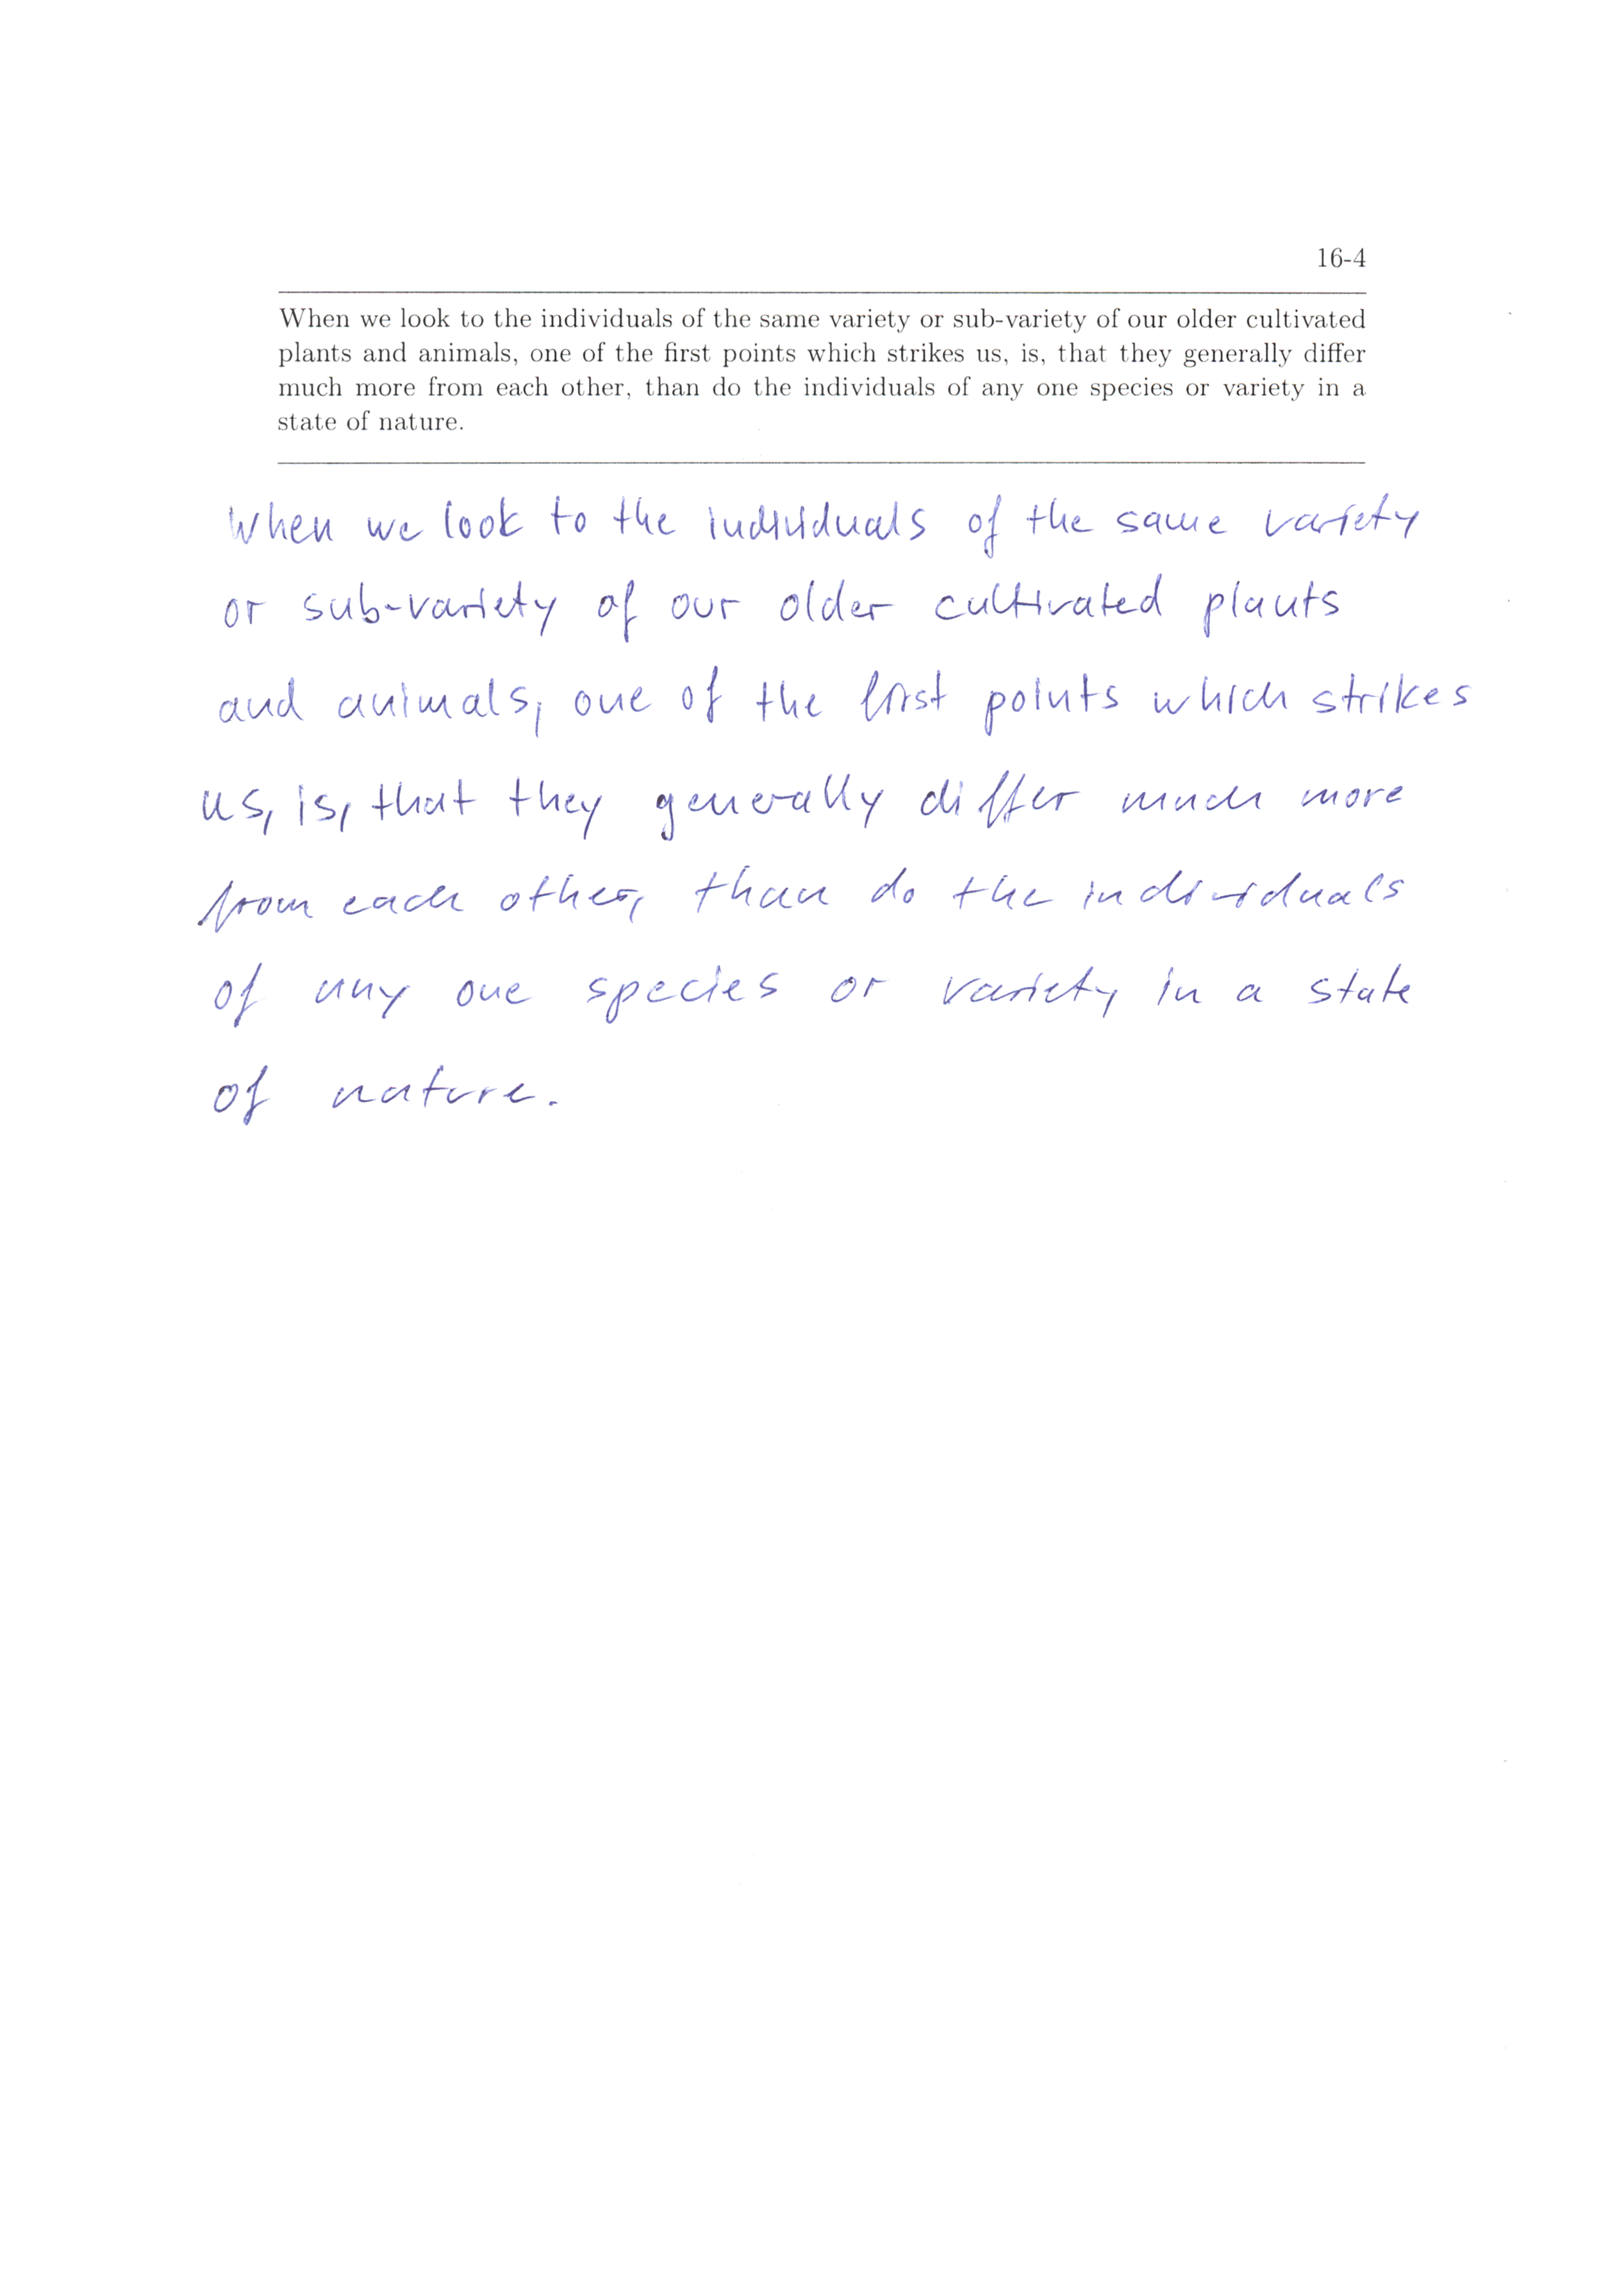 16-4
When we look to the individuals of the same variety or sub-variety of our older cultivated
plants and animals, one of the first points which strikes us, is, that they generally differ
much more from each other, than do the individuals of any one species or variety in a
state of nature.
When we look to the individuals of the same variety
or sub-variety of our older cultivated plants
and animals, one of the first points which strikes
us, is, that they generally differ much more
from each other, than do the individuals
of any one species or variety in a state
of nature.